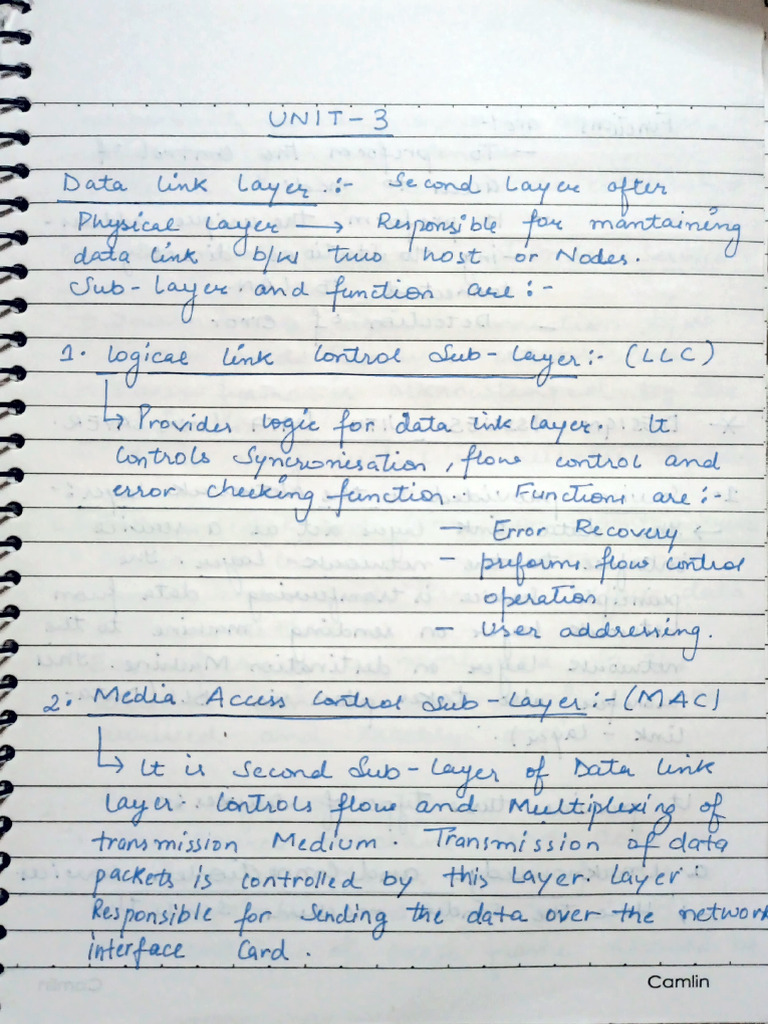 UNIT-3
Data link layer :- Second Layer after
Physical Layer → Responsible for mantaining
data link b/w two host or Nodes.
Sub-Layer and function are :-
1. Logical link Control Sub-Layer :- (LLC)
↳ Provides logic for data link layer. It
Controls Syncronisation, flow control and
error checking function. Functions are :-
- Error Recovery
- preforms flow control
operation
- User addressing.
2. Media Access Control Sub-Layer :- (MAC)
↳ It is second Sub-Layer of Data link
layer. Controls flow and Multiplexing of
transmission Medium. Transmission of data
packets is controlled by this Layer. Layer :
Responsible for Sending the data over the network
interface Card.
Camlin